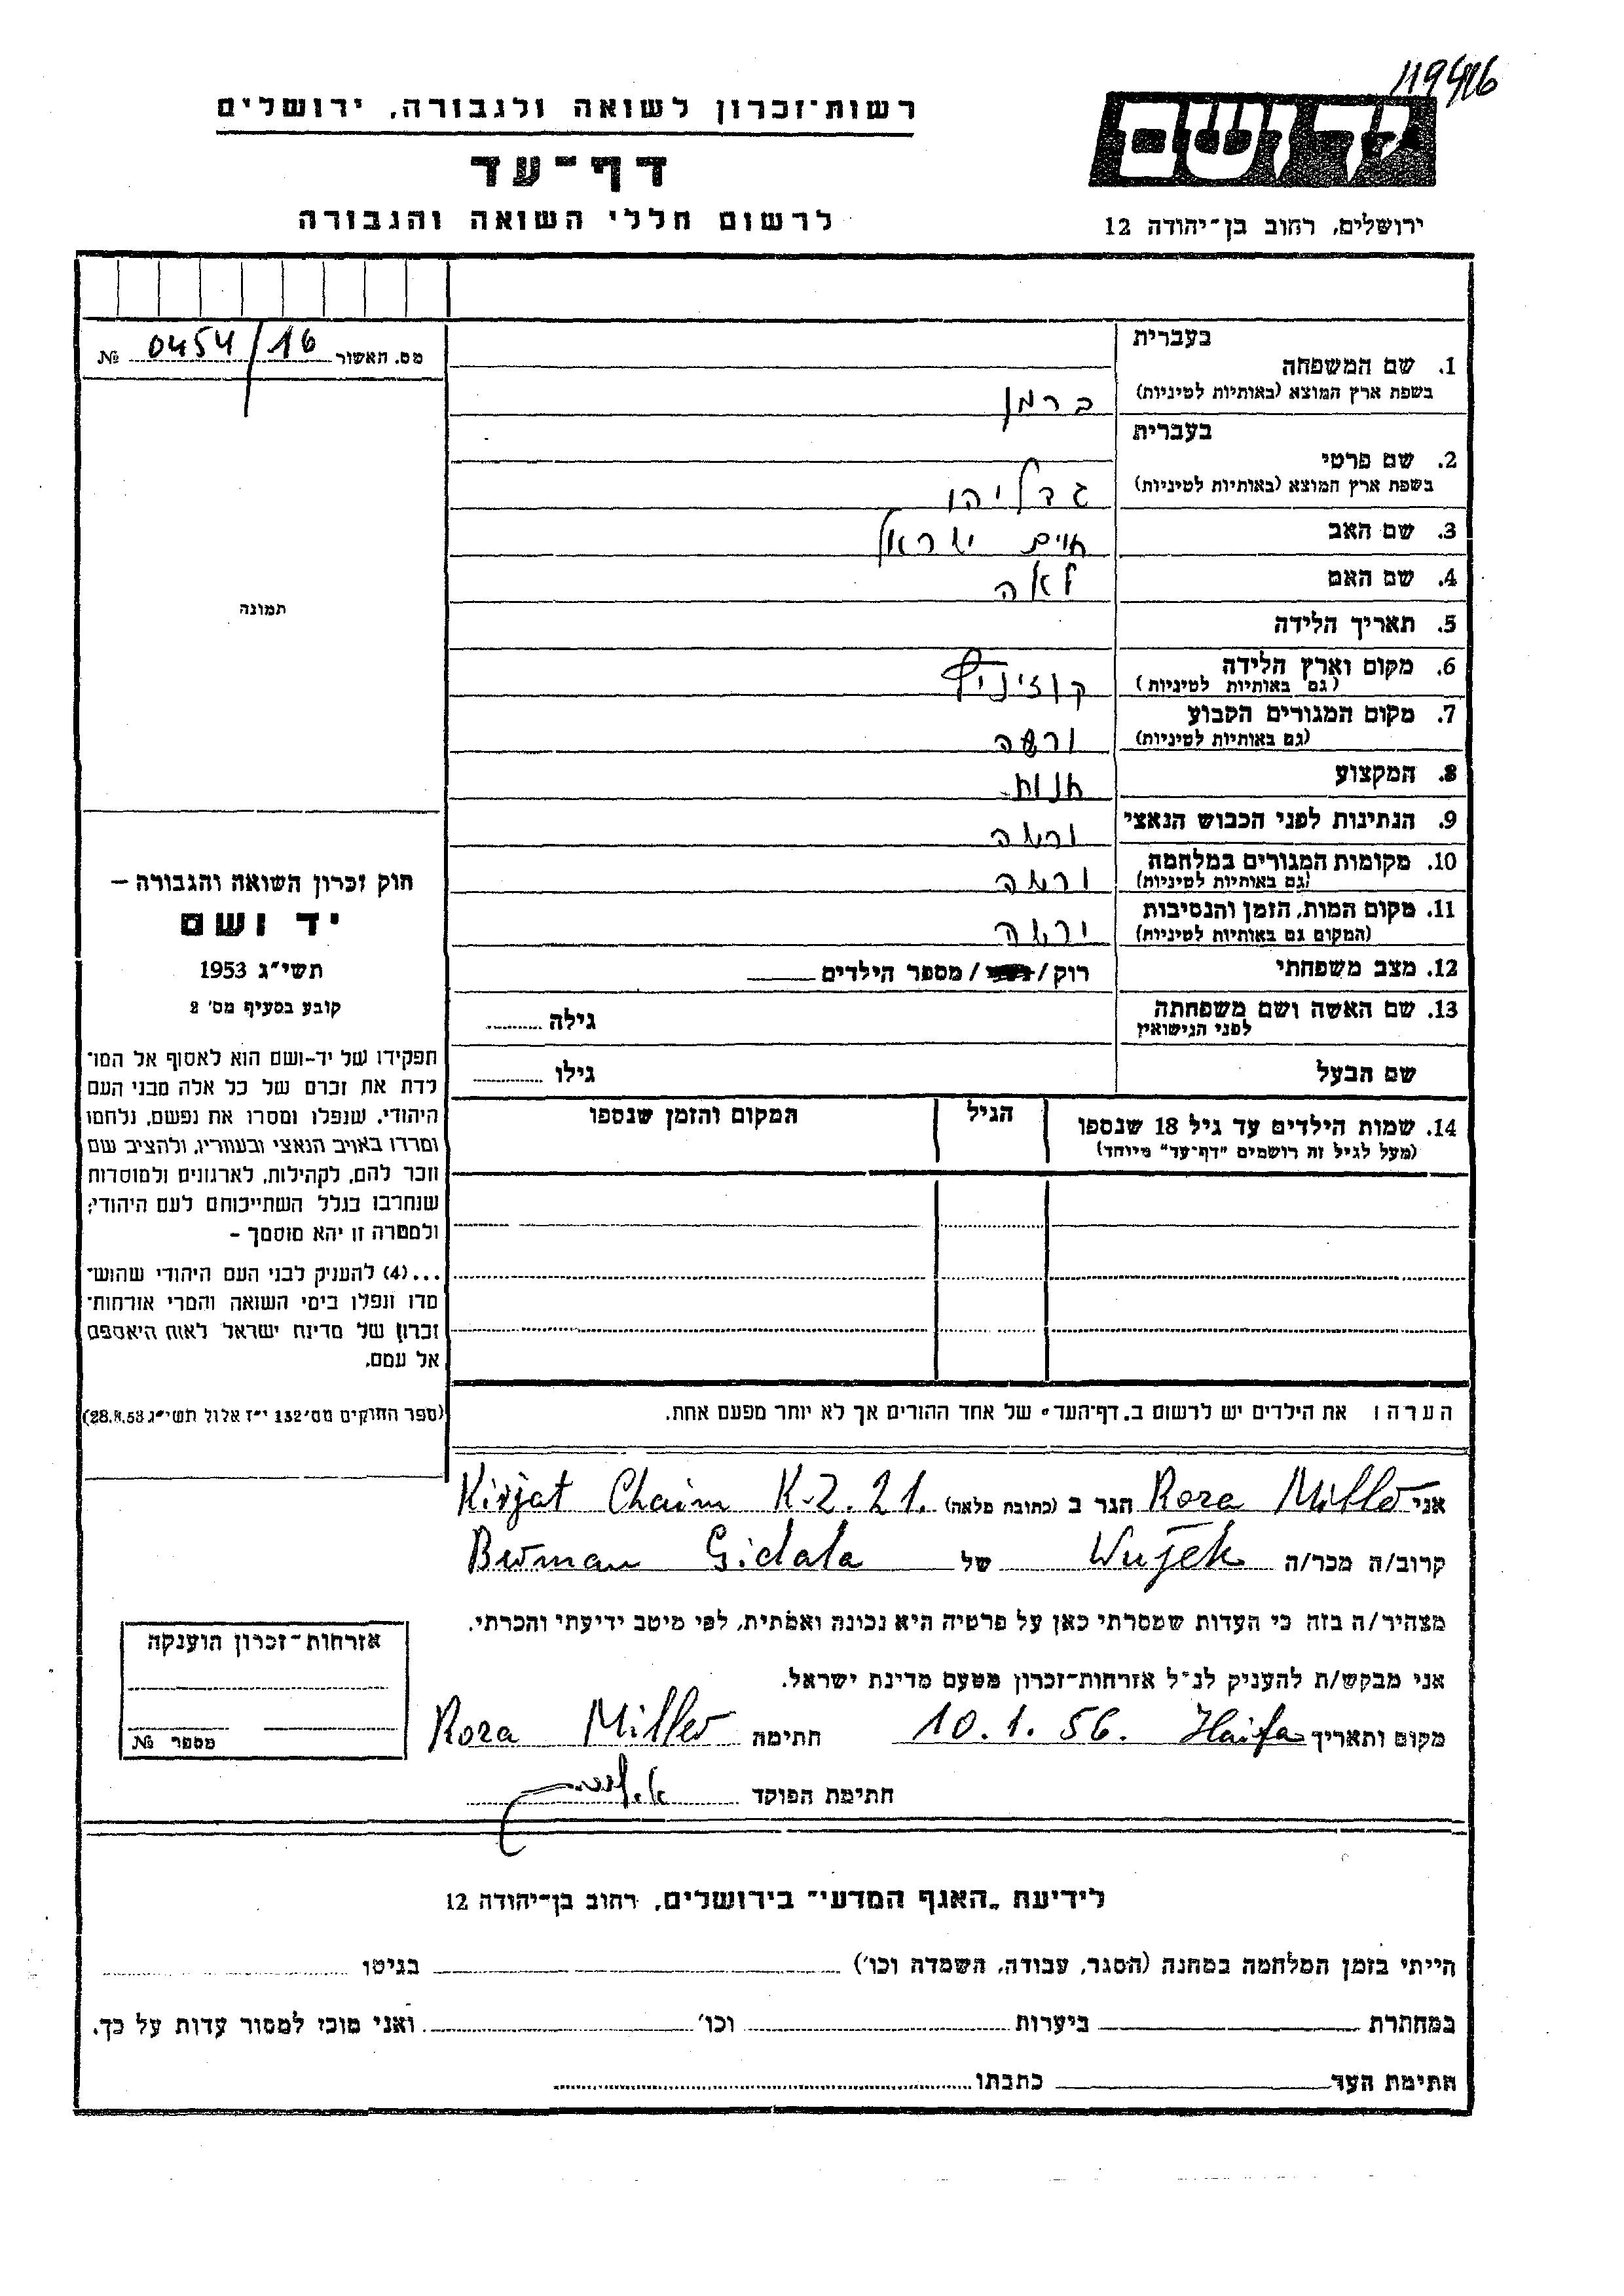 119416
רשות־זכרון לשואה ולגבורה, ירושלים
דף־עד
לרשום חללי השואה והגבורה
ירושלים, רחוב בן־יהודה 12
מס. האשור 0454/16 №
תמונה
חוק זכרון השואה והגבורה –
יד ושם
תשי״ג 1953
קובע בסעיף מס' 2
תפקידו של יד-ושם הוא לאסוף אל המו־
לדת את זכרם של כל אלה מבני העם
היהודי, שנפלו ומסרו את נפשם, נלחמו
ומרדו באויב הנאצי ובעוזריו, ולהציב שם
וזכר להם, לקהילות, לארגונים ולמוסדות
שנחרבו בגלל השתייכותם לעם היהודי;
ולמטרה זו יהא מוסמך –
...(4) להעניק לבני העם היהודי שהוש־
מדו ונפלו בימי השואה והמרי אזרחות־
זכרון של מדינת ישראל לאות היאספם
אל עמם.
(ספר החוקים מס' 132 י״ז אלול תשי״ג 28.8.53)
בעברית
1. שם המשפחה
(בשפת ארץ המוצא (באותיות לטיניות)
ברמן
בעברית
2. שם פרטי
(בשפת ארץ המוצא (באותיות לטיניות)
גדליהו
3. שם האב חיים ישראל
4. שם האם לאה
5. תאריך הלידה
6. מקום וארץ הלידה
(גם באותיות לטיניות)
7. מקום המגורים הקבוע ורשה
(גם באותיות לטיניות)
8. המקצוע
9. הנתינות לפני הכבוש הנאצי ורשה
10. מקומות המגורים במלחמה ורשה
(גם באותיות לטיניות)
11. מקום המות, הזמן והנסיבות ורשה
(המקום גם באותיות לטיניות)
12. מצב משפחתי רוק / / מספר הילדים
13. שם האשה ושם משפחתה גילה
לפני הנישואין
שם הבעל גילו
14. שמות הילדים עד גיל 18 שנספו הגיל המקום והזמן שנספו
(מעל לגיל זה רושמים "דף־עד" מיוחד)
הערה: את הילדים יש לרשום ב„דף־העד" של אחד ההורים אך לא יותר מפעם אחת.
אני Roza Miller הגר ב (כתובת מלאה) Kirjat Chaim K-2. 21.
קרוב/ה מכר/ה Wujek של Berman Gidala
מצהיר/ה בזה כי העדות שמסרתי כאן על פרטיה היא נכונה ואמתית, לפי מיטב ידיעתי והכרתי.
אני מבקש/ת להעניק לנ״ל אזרחות-זכרון מטעם מדינת ישראל.
מקום ותאריך Haifa 10.1.56. חתימה Roza Miller
חתימת הפוקד
אזרחות־זכרון הוענקה
מספר №
לידיעת „האגף המדעי" בירושלים, רחוב בן־יהודה 12
הייתי בזמן המלחמה במחנה (הסגר, עבודה, השמדה וכו') בגיטו
במחתרת ביערות וכו' ואני מוכן למסור עדות על כך.
חתימת העד כתבתו